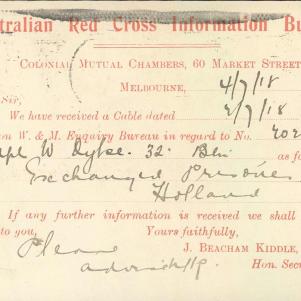 tralian Red Cross Information Bu
COLONIAL MUTUAL CHAMBERS, 60 MARKET STREET
MELBOURNE, 4/7/18
Sir,
We have received a Cable dated 2/7/18
n W. & M. Enquiry Bureau in regard to No. 202
W Dyke. 32. Bn as fo
Exchanged Prisone
Holland
If any further information is received we shall
to you, Yours faithfully,
Please J. BEACHAM KIDDLE,
Hon. Sec